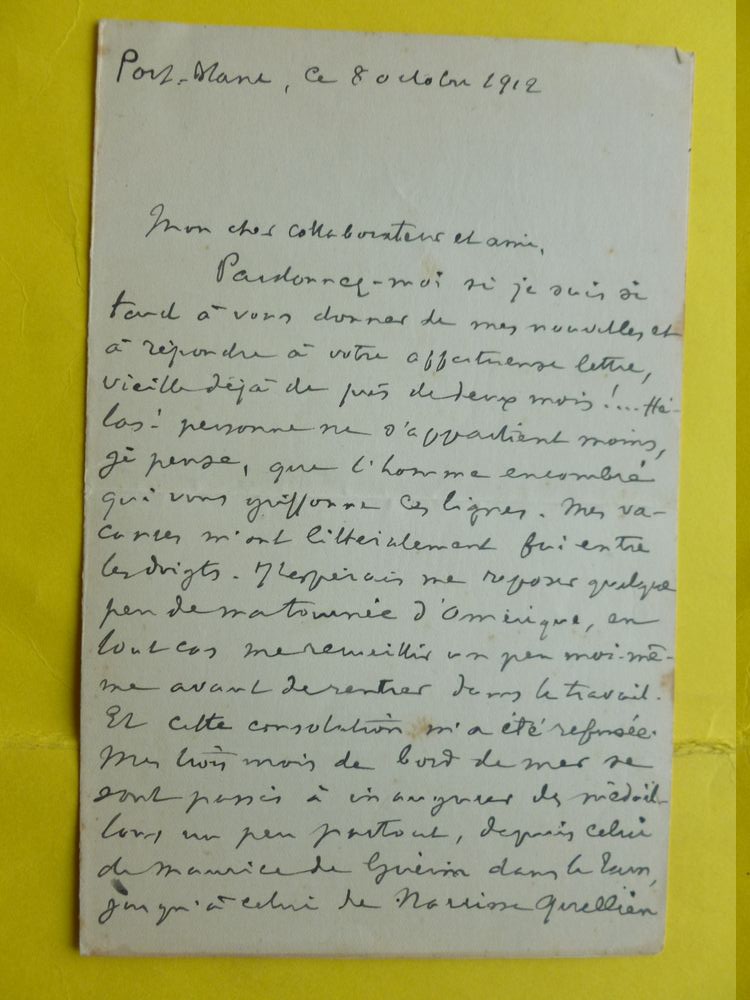 Port-Blanc, ce 8 octobre 1912
Mon cher collaborateur et ami,
Pardonnez-moi si je suis si
tard à vous donner de mes nouvelles et
à répondre à votre affectueuse lettre,
vieille déjà de près de deux mois !... Hé-
las ! personne ne s'appartient moins,
je pense, que l'homme encombré
qui vous griffonne ces lignes. Mes va-
cances m'ont littéralement fui entre
les doigts. J'espérais me reposer quelque
peu de ma tournée d'Amérique, en
tout cas me recueillir un peu moi-mê-
me avant de rentrer dans le travail.
Et cette consolation m'a été refusée.
Mes trois mois de bord de mer se
sont passés à inaugurer des médail-
lons un peu partout, depuis celui
de Maurice de Guérin dans le Tarn,
jusqu'à celui de Narcisse Quellien